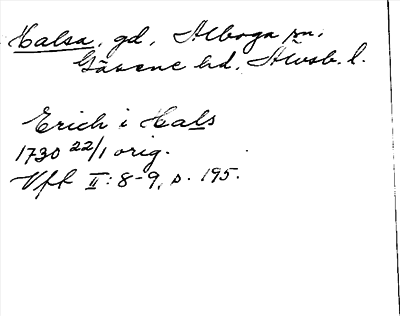 Halsa, gd, Alboga sn,
Gäsene hd, Älvsb. l.
Erich i Hals
1730 22/1 orig.
Vft II: 8-9, s. 195.